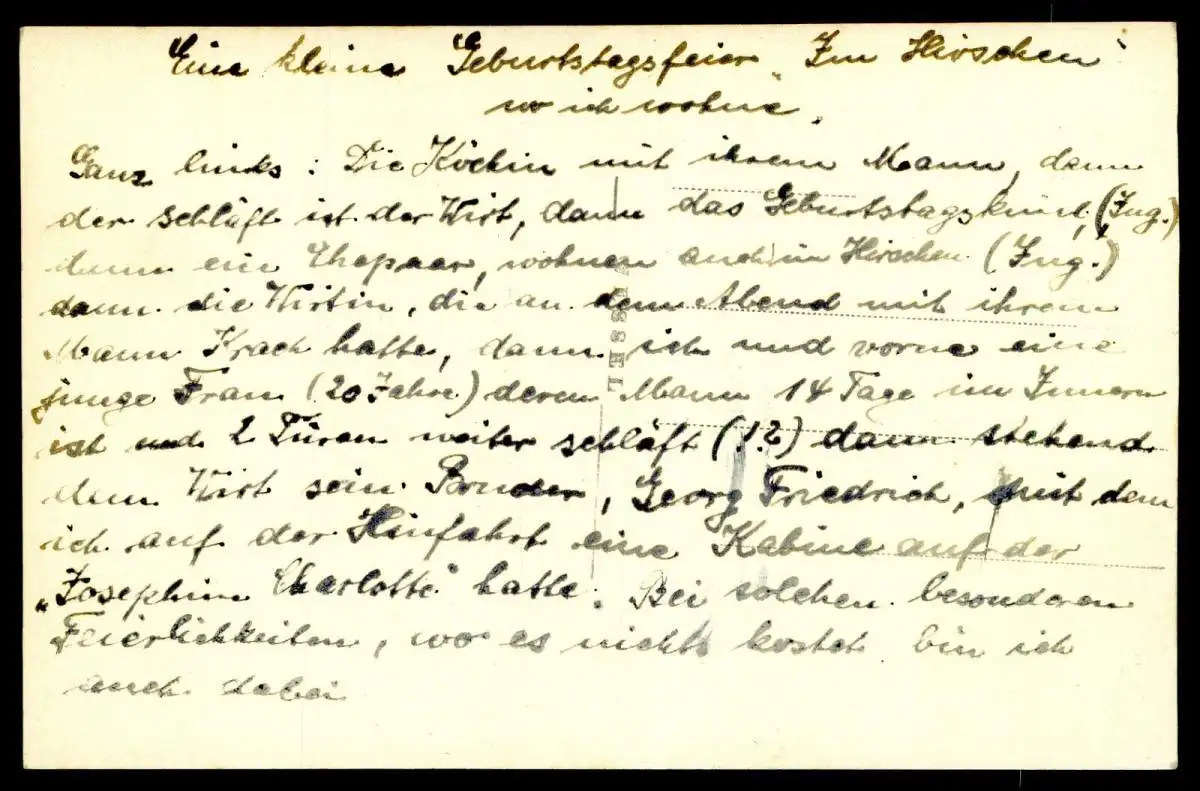 Eine kleine Geburtstagsfeier „Im Hirschen“
wo ich wohne.
Ganz links: Die Köchin mit ihrem Mann, dann
der schläft ist der Wirt, dann das Geburtstagskind, (Ing.)
dann ein Ehepaar, wohnen auch im Hirschen (Ing.)
dann die Wirtin, die an dem Abend mit ihrem
Mann Krach hatte, dann ich und vorne eine
junge Frau (20 Jahre) deren Mann 14 Tage im Innern
ist und 2 Türen weiter schläft (!?) dann stehend
dem Wirt sein Bruder, Georg Friedrich, mit dem
ich auf der Hinfahrt eine Kabine auf der
„Josephin Charlotte“ hatte. Bei solchen besonderen
Feierlichkeiten, wo es nichts kostet bin ich
auch dabei